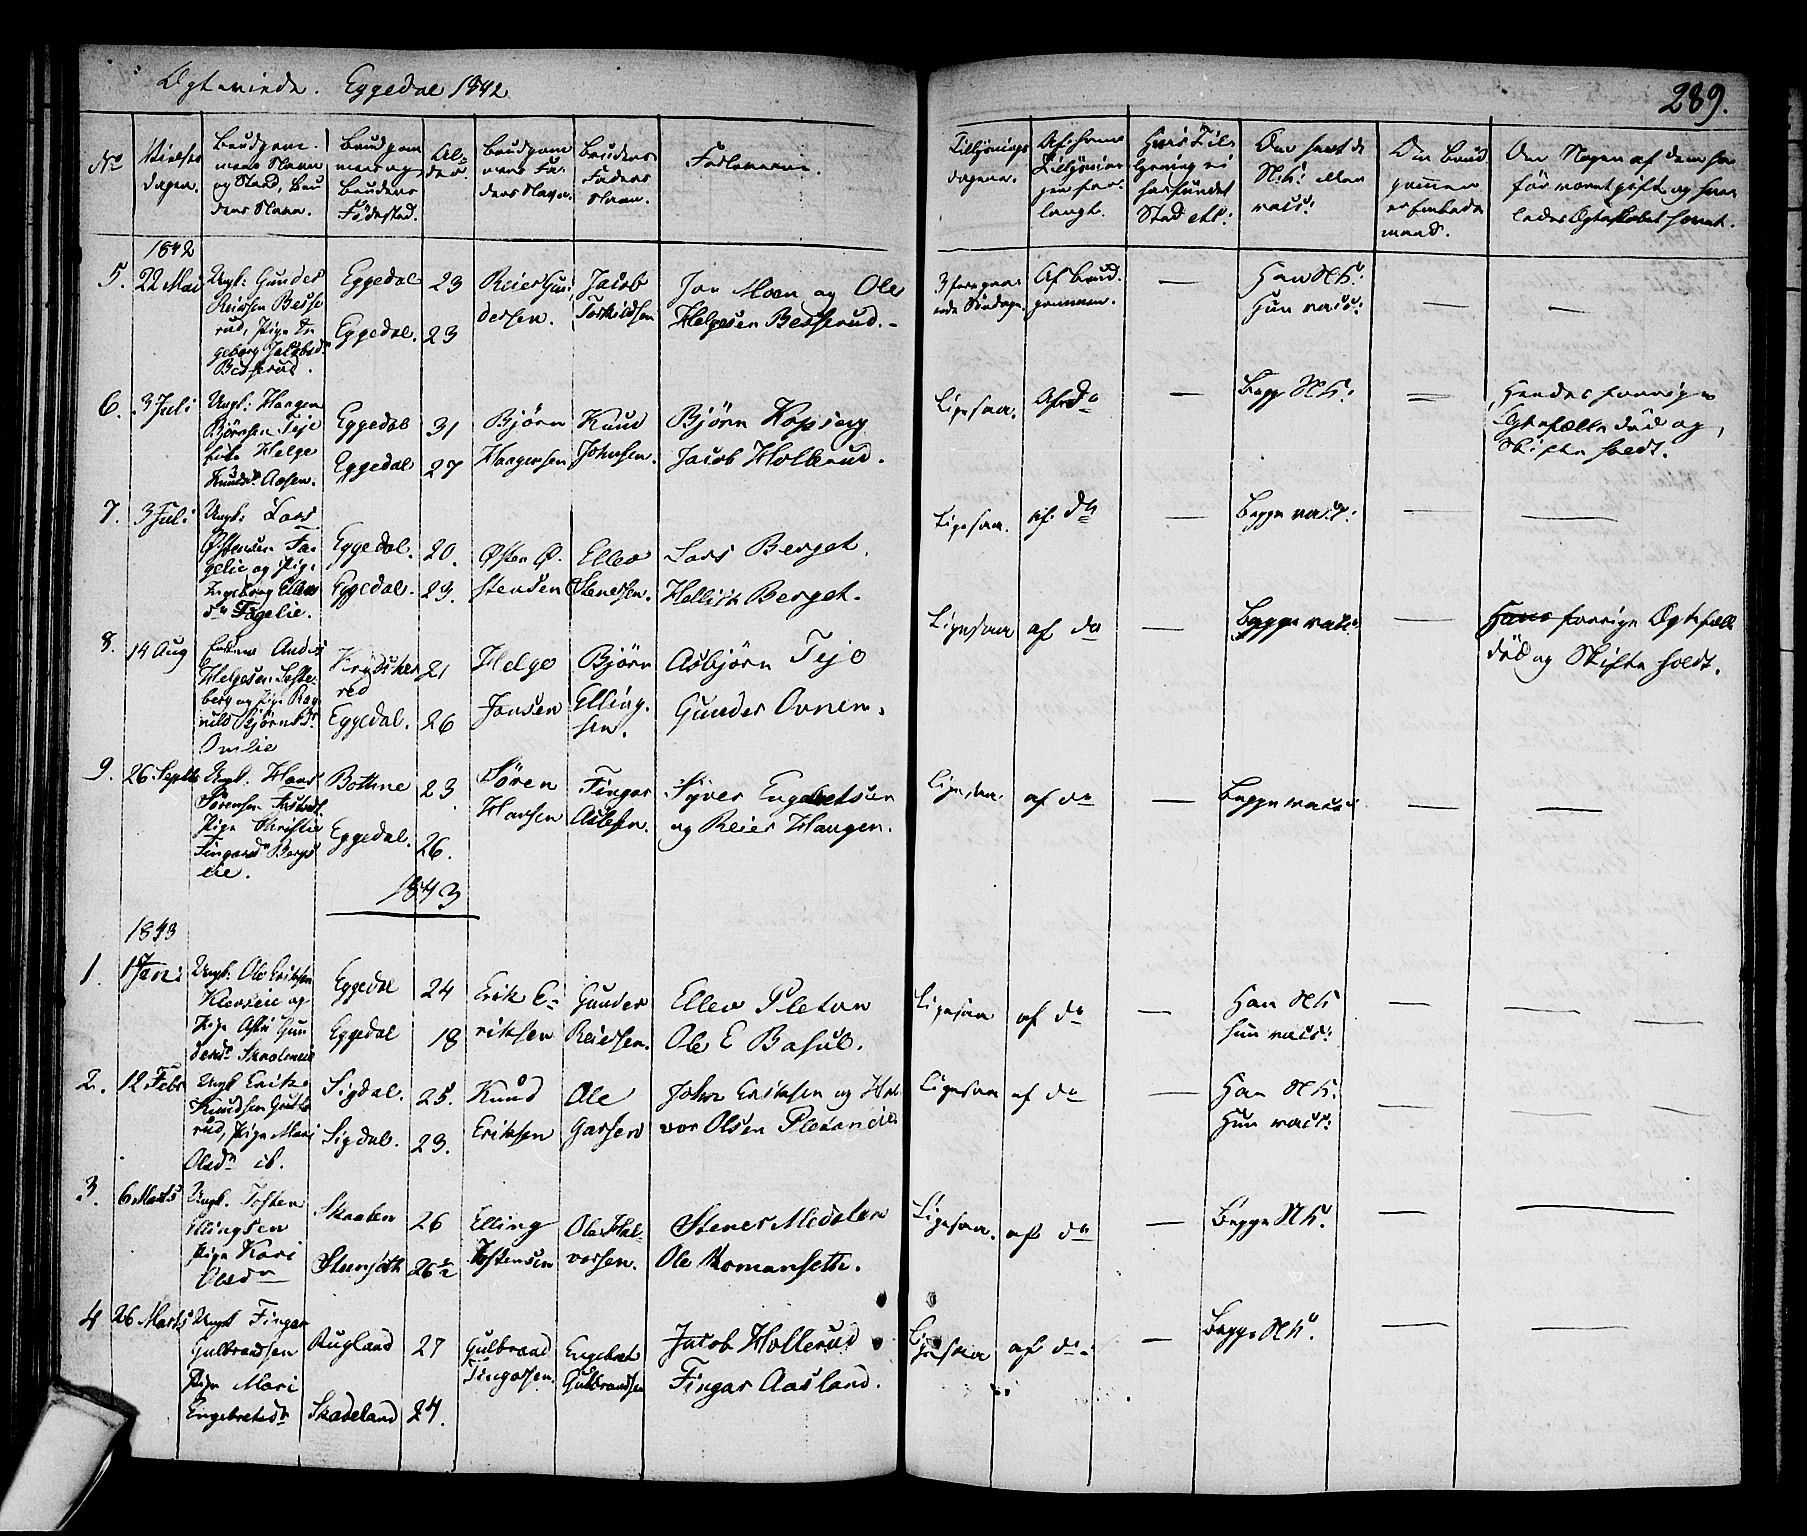 Ægteviede. Eggedal 1842
289.
No
Vielses
dagen.
Brudgom-
mens Navn
og Stand, Bru
dens Navn.
Brudgom
mens og
Brudens
Fødested.
Al-
der.
Brudgom
mens Fa-
ders Navn.
Brudens
Faders
Navn.
Forlovere.
Tillysnings
dagene.
Af hvem
Tillysnin-
gen for-
langt.
Hvis Til-
lysning ei
har fundet
Sted etc:
Om havt de
N: K: eller
vacc:
Om Brud
gommen
er Embeds
mand.
Om Nogen af dem har
før været gift og hvor
ledes Ægteskabet hævet.
1842
5. 22 Mai
Ungk: Gunder
Reiersen Besse
rud, Pige In
geborg Jacobsd.
Besserud.
Eggedal 23
Eggedal. 23
Reier Gun
dersen.
Jacob
Torkildsen
Jon Moen og Ole
Helgesen Besserud.
3 foregaa-
ende Søndage.
Af Brud-
gommen.
—
Han N. K.
Hun vacc:
—
—
6. 3 Juli
Ungk: Haagen
Bjørnsen Teje
Helge
Knudsd. Aasen.
Eggedal 31
Eggedal 27
Bjørn
Haagensen
Knud
Johnsen.
Bjørn Kopseng
Jacob Hollerud.
Ligesaa.
Af do
—
Begge N. K.
—
Hendes forrige
Ægtefælle død og
Skifte holdt.
7. 3 Juli
Ungk: Lars
Østensen Fa-
gelie og Pige
Ingeborg Ellevs
dn Fagelie.
Eggedal. 20.
Eggedal. 23.
Østen Ø-
stensen
Ellev
Stenersen.
Lars Berget.
Hellik Berget.
Ligesaa.
af. do
—
Begge vacc:
—
—
8. 14 Aug
Enkem Anders
Helgesen
berg og Pige Rag
nild Bjørnsd.
Omlie
Krydsher
red 21
Eggedal. 26
Helge
Jonsen
Bjørn
Elling-
sen.
Asbjørn Teje
Gunder Ovnen.
Ligesaa
af do
—
Begge vacc:
—
Hans forrige Ægtefælle
død og Skifte holdt.
9. 26. Septbr
Ungk. Hans
Sørensen
Pige Christie
Fingarsd. Bergs
eie.
Bottne 23
Eggedal. 26.
Søren
Hansen
Fingar
Aslesen.
Syver Engebretsen
og Reier Haugen.
Ligesaa.
af do
—
Begge vacc:
—
—
1843
1843
1. 1 Jan:
Ungk: Ole Eriksen
Kleveeie og
Pige Astri Gun
dersd. Skaaleneie
Eggedal 24
Eggedal 18
Erik E-
riksen
Gunder
Reiersen.
Ellev Pleton
Ole E Basul.
Ligesaa
af do
—
Han N K
Hun vacc:
—
—
2. 12 Febr
Ungk Erik
Knudsen Gutte
rud, Pige Mari
Olsdn ib.
Sigdal. 25.
Sigdal. 23.
Knud
Eriksen
Ole
Garsen
John Eriksen og Hal
vor Olsen Pletaneie
Ligesaa
af do
—
Han N K.
Hun vacc:
—
—
3. 6 Marts
Ungk. Tosten
Ellingsen
Pige Kari
Olsdn
Skaalen 26
26 1/2
Elling
Tostensen
Ole Hal-
vorsen.
Stener Medalen
Ole Komansette.
Ligesaa.
af do
—
Begge N K.
—
—
4 26 Marts
Ungk Fingar
Gulbrandsen
Pige Mari
Engebretsdn
Rugland 27
Skadeland 24.
Gulbrand
Fingarsen.
Engebret
Gulbrandsen
Jacob Hollerud
Fingar Aasland.
Ligesaa
af do.
—
Begge N K.
—
—